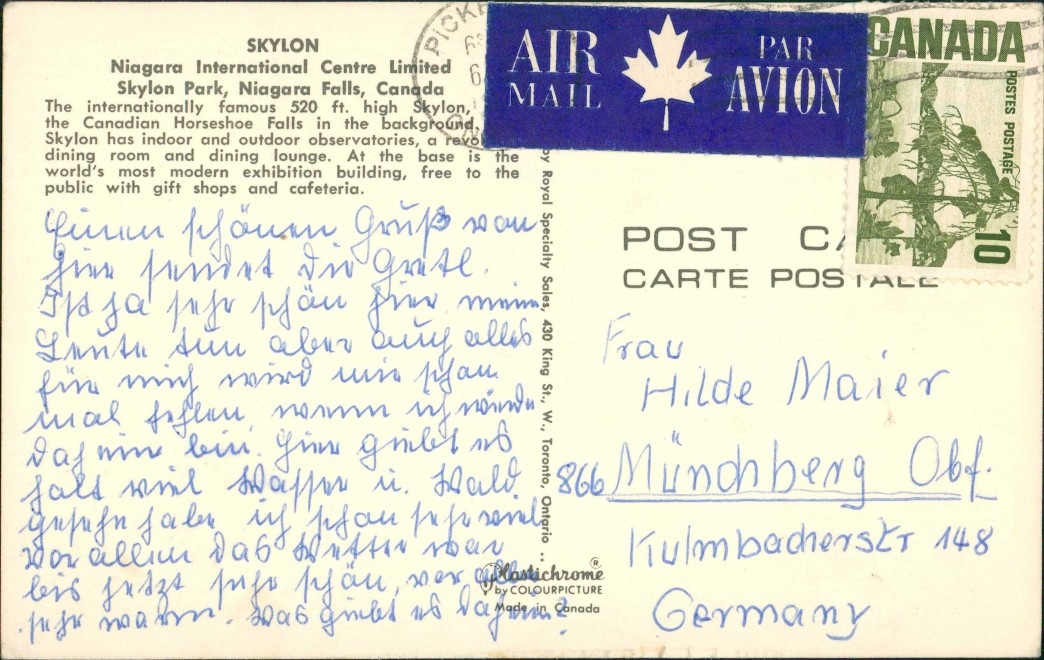 SKYLON
Niagara International Centre Limited
Skylon Park, Niagara Falls, Canada
The internationally famous 520 ft. high Skylon,
the Canadian Horseshoe Falls in the background.
Skylon has indoor and outdoor observatories, a revol
dining room and dining lounge. At the base is the
world's most modern exhibition building, free to the
public with gift shops and cafeteria.
Einen schönen Gruß von
hier sendet die Gretl.
Ist ja sehr schön hier, meine
Leute tun aber auch alles
für mich wird mir schon
mal fehlen, wenn ich wieder
daheim bin. Hier giebt es
halt viel Wasser u. Wald.
gesehn habe ich schon sehr viel
vor allem das Wetter war
bis jetzt sehr schön, vor allem
sehr warm. Was giebt es daheim?
by Royal Specialty Sales, 430 King St., W., Toronto, Ontario
Plastichrome ®
by COLOURPICTURE
Made in Canada
PICK
AIR MAIL
PAR AVION
CANADA
POSTES POSTAGE
10
POST CA
CARTE POSTALE
Frau
Hilde Maier
866 Münchberg Obf.
Kulmbacherstr 148
Germany